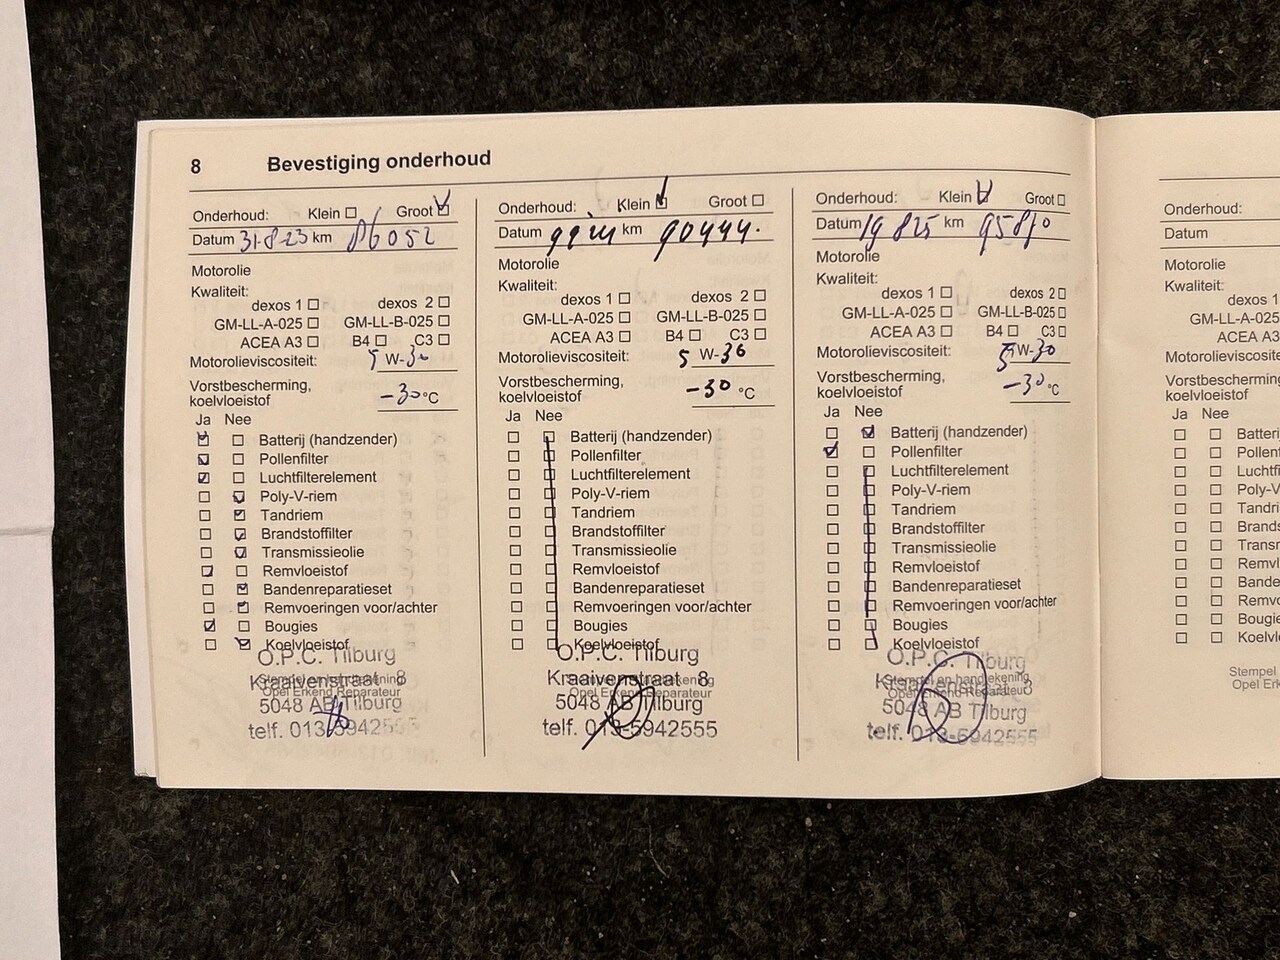 8 Bevestiging onderhoud
Onderhoud: Klein Groot
Datum 31-8-23 km 86052
Motorolie
Kwaliteit:
dexos 1 dexos 2
GM-LL-A-025 GM-LL-B-025
ACEA A3 B4 C3
Motorolieviscositeit: 5 W-30
Vorstbescherming,
koelvloeistof -30 °C
Ja Nee
Batterij (handzender)
Pollenfilter
Luchtfilterelement
Poly-V-riem
Tandriem
Brandstoffilter
Transmissieolie
Remvloeistof
Bandenreparatieset
Remvoeringen voor/achter
Bougies
Koelvloeistof
O.P.C. Tilburg
Kraaivenstraat 8
Stempel en handtekening
Opel Erkend Reparateur
5048 AB Tilburg
telf. 013-5942555
Onderhoud: Klein Groot
Datum km 90444.
Motorolie
Kwaliteit:
dexos 1 dexos 2
GM-LL-A-025 GM-LL-B-025
ACEA A3 B4 C3
Motorolieviscositeit: 5 W-30
Vorstbescherming,
koelvloeistof -30 °C
Ja Nee
Batterij (handzender)
Pollenfilter
Luchtfilterelement
Poly-V-riem
Tandriem
Brandstoffilter
Transmissieolie
Remvloeistof
Bandenreparatieset
Remvoeringen voor/achter
Bougies
Koelvloeistof
O.P.C. Tilburg
Kraaivenstraat 8
Stempel en handtekening
Opel Erkend Reparateur
5048 AB Tilburg
telf. 013-5942555
Onderhoud: Klein Groot
Datum 19 8 25 km
Motorolie
Kwaliteit:
dexos 1 dexos 2
GM-LL-A-025 GM-LL-B-025
ACEA A3 B4 C3
Motorolieviscositeit: 5 W-30
Vorstbescherming,
koelvloeistof -30 °C
Ja Nee
Batterij (handzender)
Pollenfilter
Luchtfilterelement
Poly-V-riem
Tandriem
Brandstoffilter
Transmissieolie
Remvloeistof
Bandenreparatieset
Remvoeringen voor/achter
Bougies
Koelvloeistof
O.P.C. Tilburg
Kraaivenstraat 8
Stempel en handtekening
Opel Erkend Reparateur
5048 AB Tilburg
telf. 013-5942555
Onderhoud:
Datum
Motorolie
Kwaliteit:
dexos 1
GM-LL-A-025
ACEA A3
Motorolieviscositeit
Vorstbescherming
koelvloeistof
Ja Nee
Batteri
Pollen
Luchtfi
Poly-V
Tandri
Brands
Transm
Remvl
Bande
Remvo
Bougie
Koelvl
Stempel
Opel Erk